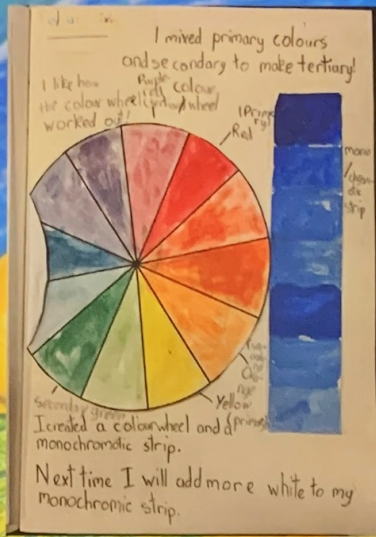 I mixed primary colours
and secondary to make tertiary!
I like how
the colour wheel
worked out!
Purple
colour
wheel
Red
mono
strip
Yellow
Secondary green
I created a colourwheel and
monochromatic strip.
Next time I will add more white to my
monochromic strip.